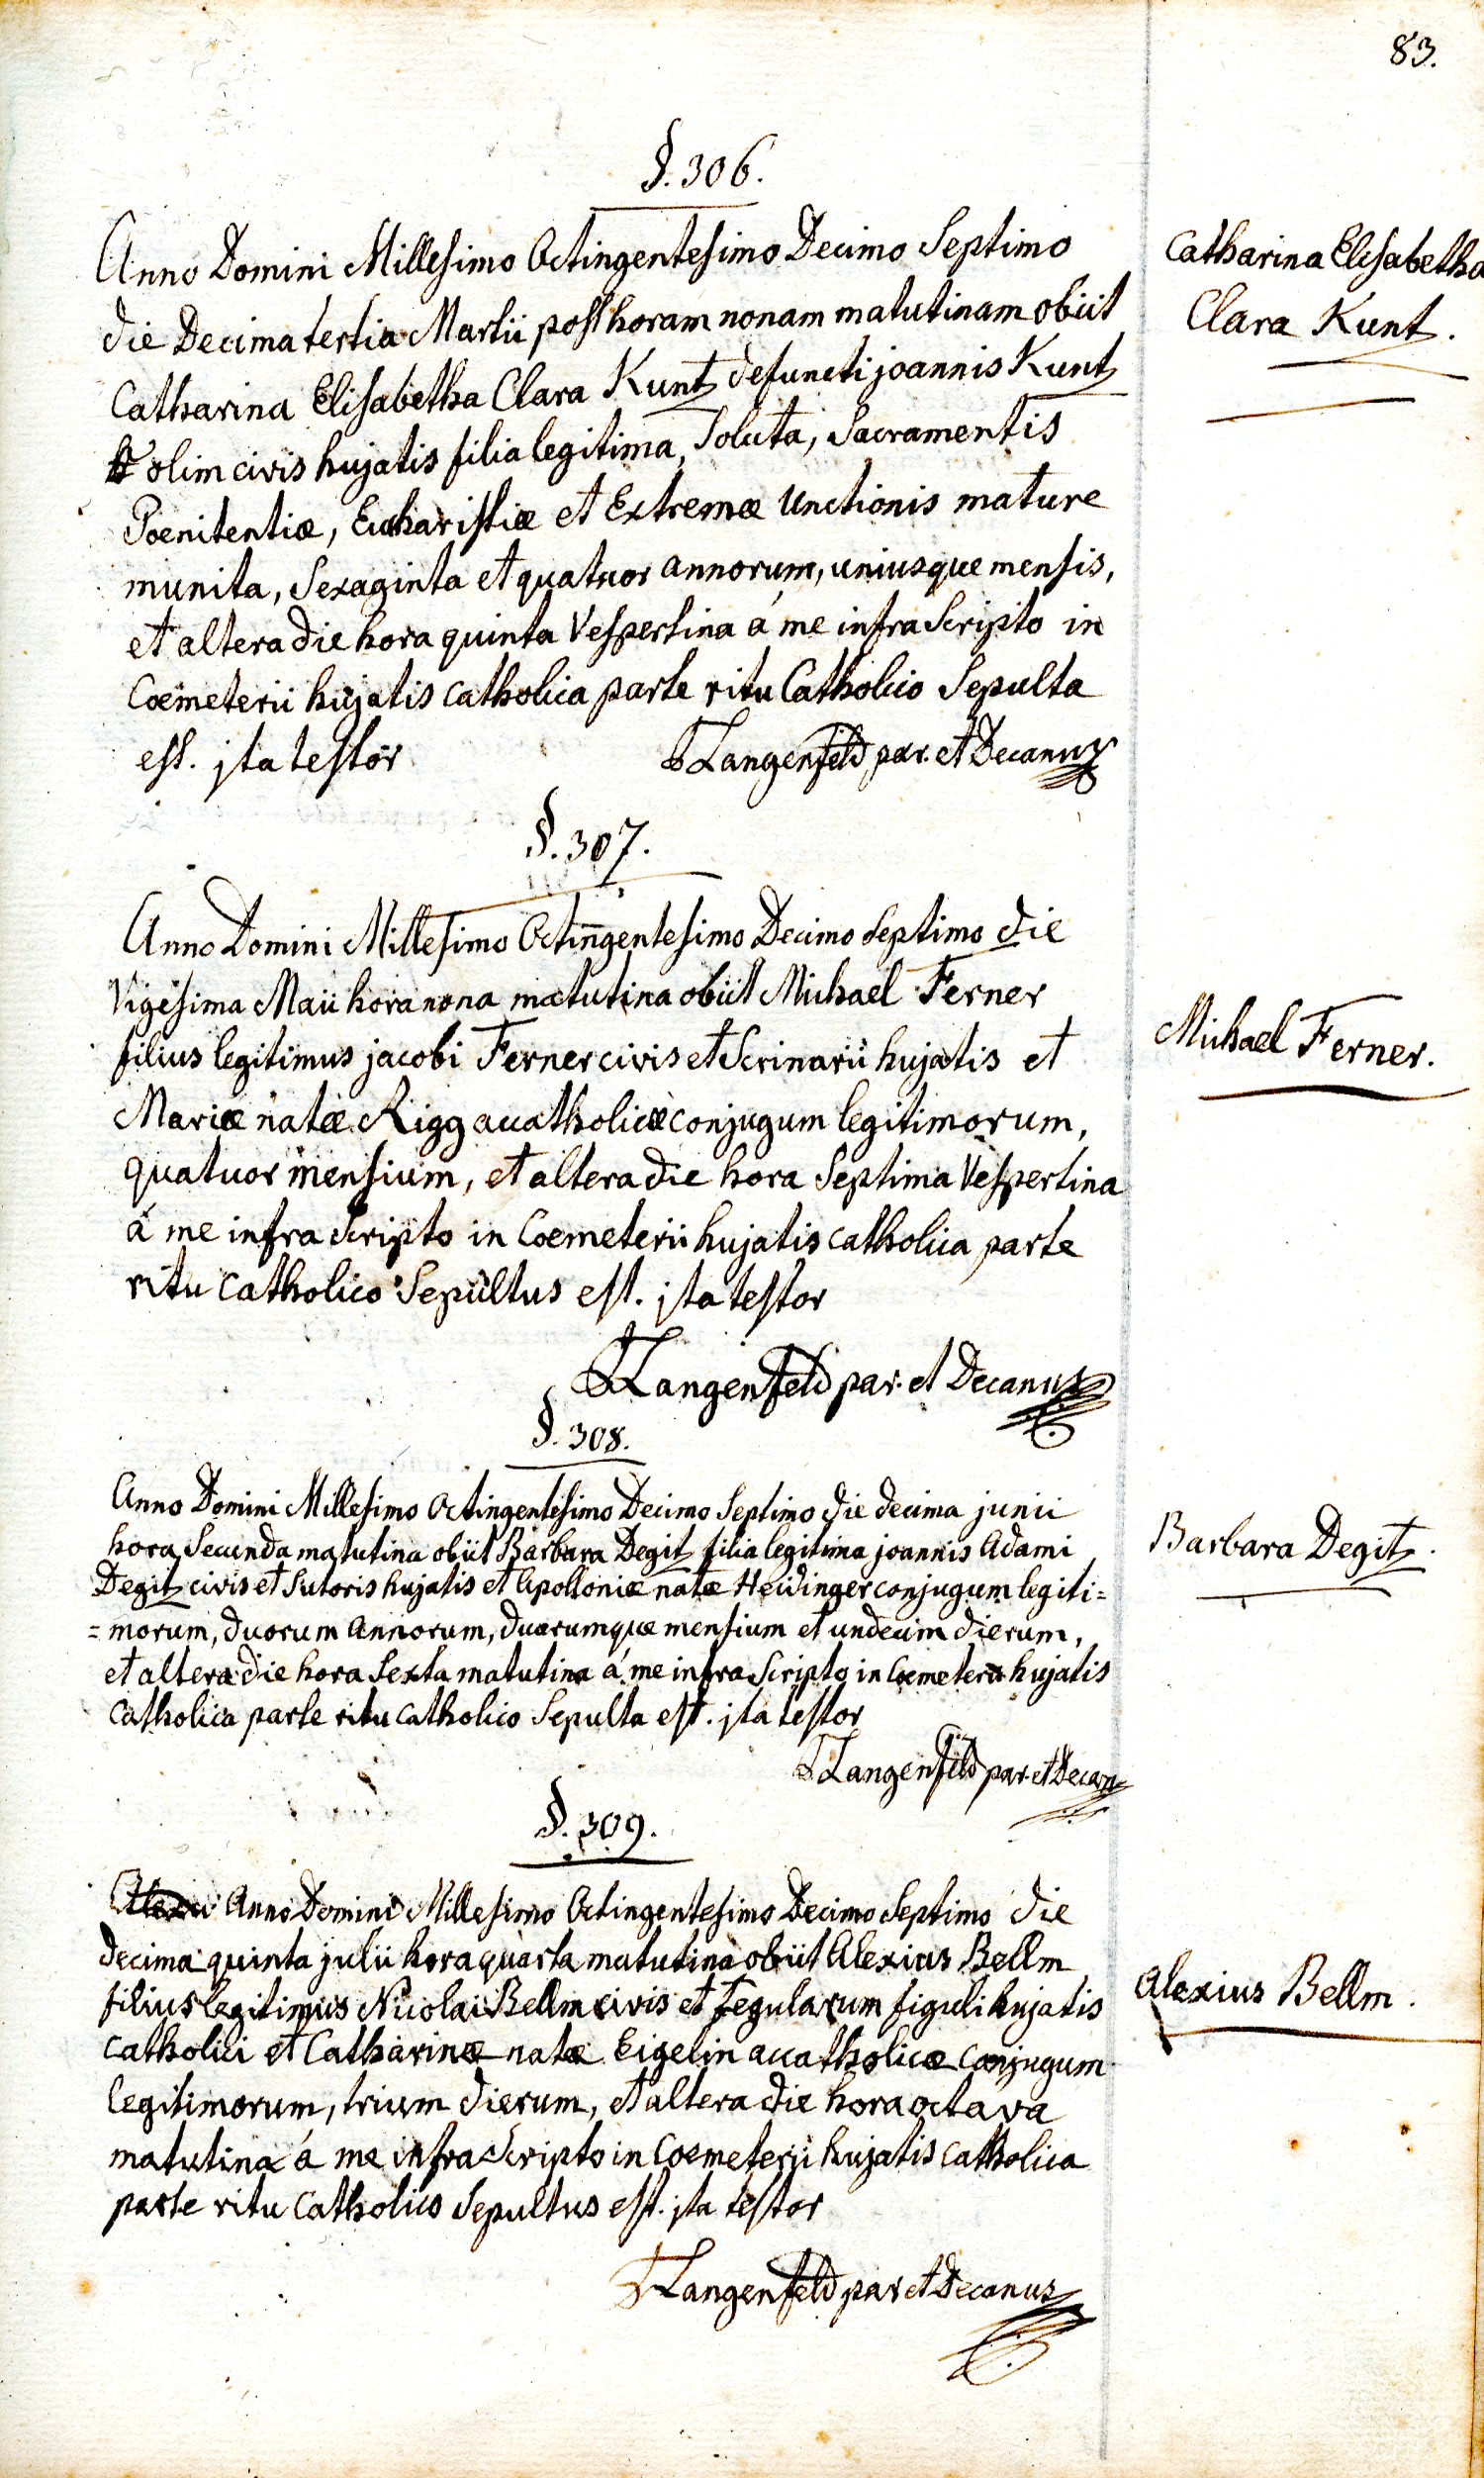 83.
§. 306.
Anno Domini Millesimo Octingentesimo Decimo Septimo
die Decima tertia Martii post horam nonam matutinam obiit
Catharina Elisabetha Clara Kuntz defuncti joannis Kuntz
olim civis hujatis filia legitima, Soluta, Sacramentis
Poenitentiæ, Eucharistiæ et Extremæ Unctionis mature
munita, Sexaginta et quatuor annorum, uniusque mensis,
et altera die hora quinta Vespertina á me infra Scripto in
Coemeterii hujatis catholica parte ritu Catholico Sepulta
est. jta testor
Langenfeld par. et Decanus
Catharina Elisabetha
Clara Kuntz.
§. 307.
Anno Domini Millesimo Octingentesimo Decimo Septimo die
Vigesima Maii hora nona matutina obiit Michael Ferner
filius legitimus jacobi Ferner civis et Scrinarii hujatis et
Mariæ natæ Rigg acatholicæ conjugum legitimorum,
quatuor mensium, et altera die hora Septima Vespertina
á me infra Scripto in Coemeterii hujatis catholica parte
ritu catholico Sepultus est. jta testor
Langenfeld par. et Decanus
Michael Ferner.
§. 308.
Anno Domini Millesimo Octingentesimo Decimo Septimo die decima junii
hora Secunda matutina obiit Barbara Degitz filia legitima joannis Adami
Degitz civis et Sutoris hujatis et Apolloniæ natæ Heidinger conjugum legiti=
=morum, duorum Annorum, duarumque mensium et undecim dierum,
et altera die hora Sexta matutina á me infra Scripto in Coemeterii hujatis
catholica parte ritu catholico Sepulta est. jta testor
Langenfeld par. et Decan
Barbara Degitz.
§. 309.
Anno Domini Millesimo Octingentesimo Decimo Septimo die
decima quinta julii hora quarta matutina obiit Alexius Bellm
filius legitimus Nicolai Bellm civis et Tegularum figuli hujatis
catholici et Catharinæ natæ Eigelin acatholicæ conjugum
legitimorum, trium dierum, et altera die hora octava
matutina á me infra Scripto in Coemeterii hujatis catholica
parte ritu Catholico Sepultus est. jta testor
Langenfeld par et Decanus
Alexius Bellm.